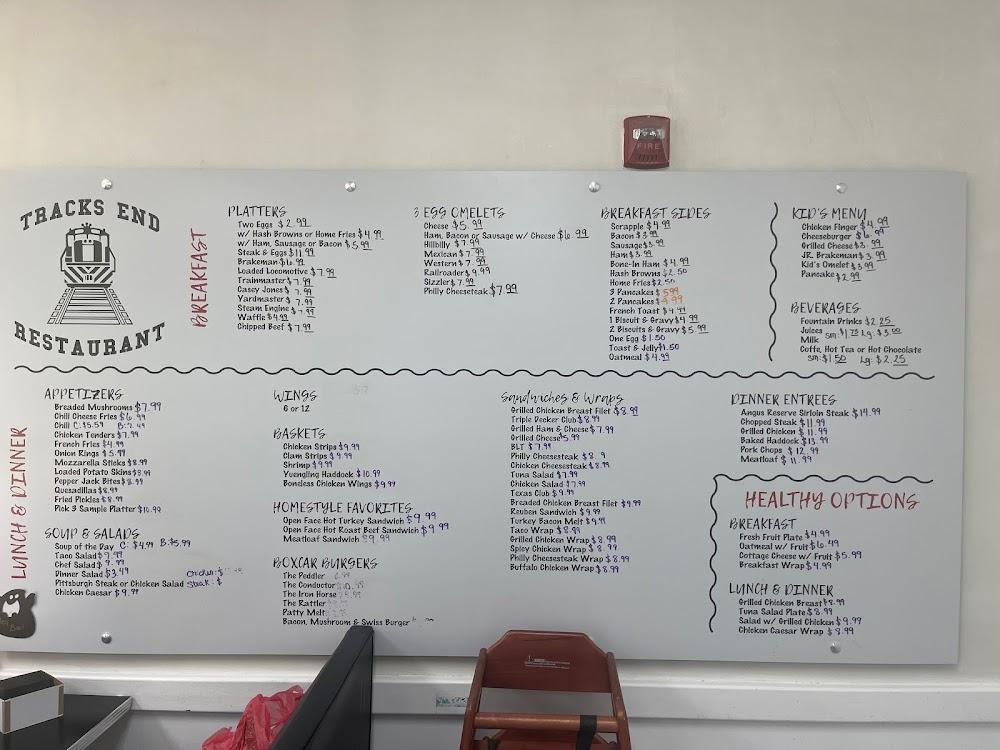 TRACKS END
RESTAURANT
BREAKFAST
PLATTERS
Two Eggs $2.99
w/ Hash Browns or Home Fries $4.99
w/ Ham, Sausage or Bacon $5.99
Steak & Eggs $11.99
Brakeman $6.99
Loaded Locomotive $7.99
Trainmaster $7.99
Casey Jones $7.99
Yardmaster $7.99
Steam Engine $7.99
Waffle $4.99
Chipped Beef $7.99
3 EGG OMELETS
Cheese $5.99
Ham, Bacon or Sausage w/ Cheese $6.99
Hillbilly $7.99
Mexican $7.99
Western $7.99
Railroader $9.99
Sizzler $7.99
Philly Cheesesteak $7.99
BREAKFAST SIDES
Scrapple $4.99
Bacon $3.99
Sausage $3.99
Ham $3.99
Bone-In Ham $4.99
Hash Browns $2.50
Home Fries $2.50
3 Pancakes $5.99
2 Pancakes $4.99
French Toast $4.99
1 Biscuit & Gravy $4.99
2 Biscuits & Gravy $5.99
One Egg $1.50
Toast & Jelly $1.50
Oatmeal $4.99
KID'S MENU
Chicken Finger $4.99
Cheeseburger $6.99
Grilled Cheese $3.99
JR. Brakeman $3.99
Kid's Omelet $3.99
Pancake $2.99
BEVERAGES
Fountain Drinks $2.25
Juices sm: $1.75 Lg: $3.00
Milk
Coffe, Hot Tea or Hot Chocolate
sm: $1.50 Lg: $2.25
FIRE
LUNCH & DINNER
APPETIZERS
Breaded Mushrooms $7.99
Chili Cheese Fries $6.99
Chili C: $5.59 B: 7.49
Chicken Tenders $7.99
French Fries $4.99
Onion Rings $5.99
Mozzarella Sticks $8.99
Loaded Potato Skins $8.99
Pepper Jack Bites $8.99
Quesadillas $8.99
Fried Pickles $8.99
Pick 3 Sample Platter $10.99
SOUP & SALADS
Soup of the Day C: $4.99 B: $5.99
Taco Salad $7.99
Chef Salad $9.99
Dinner Salad $3.49
Pittsburgh Steak or Chicken Salad Chicken: $ Steak: $
Chicken Caesar $9.99
WINGS
6 or 12
BASKETS
Chicken Strips $9.99
Clam Strips $9.99
Shrimp $9.99
Yuengling Haddock $10.99
Boneless Chicken Wings $9.99
HOMESTYLE FAVORITES
Open Face Hot Turkey Sandwich $9.99
Open Face Hot Roast Beef Sandwich $9.99
Meatloaf Sandwich $9.99
BOXCAR BURGERS
The Peddler
The Conductor
The Iron Horse
The Rattler
Patty Melt
Bacon, Mushroom & Swiss Burger
Sandwiches & Wraps
Grilled Chicken Breast Filet $8.99
Triple Decker Club $8.99
Grilled Ham & Cheese $7.99
Grilled Cheese $5.99
BLT $7.99
Philly Cheesesteak $8.9
Chicken Cheesesteak $8.99
Tuna Salad $7.99
Chicken Salad $7.99
Texas Club $9.99
Breaded Chicken Breast Filet $9.99
Reuben Sandwich $9.99
Turkey Bacon Melt $9.99
Taco Wrap $8.99
Grilled Chicken Wrap $8.99
Spicy Chicken Wrap $8.99
Philly Cheesesteak Wrap $8.99
Buffalo Chicken Wrap $8.99
DINNER ENTREES
Angus Reserve Sirloin Steak $14.99
Chopped Steak $11.99
Grilled Chicken $11.99
Baked Haddock $13.99
Pork Chops $12.99
Meatloaf $11.99
HEALTHY OPTIONS
BREAKFAST
Fresh Fruit Plate $4.99
Oatmeal w/ Fruit $6.49
Cottage Cheese w/ Fruit $5.99
Breakfast Wrap $4.99
LUNCH & DINNER
Grilled Chicken Breast $8.99
Tuna Salad Plate $8.99
Salad w/ Grilled Chicken $9.99
Chicken Caesar Wrap $8.99